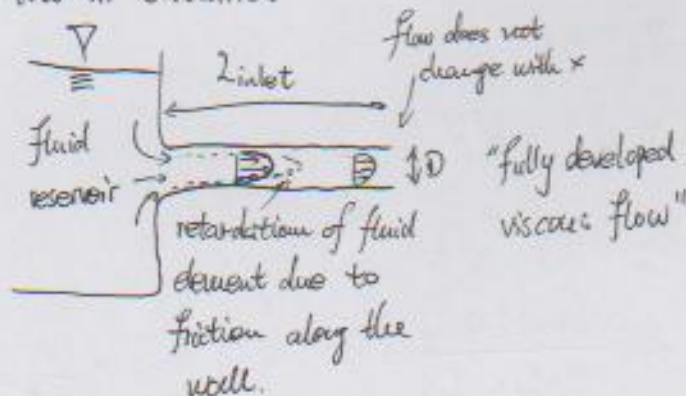 flow does not
change with x
L inlet
fluid
reservoir
D
"fully developed
viscous flow"
retardation of fluid
element due to
friction along the
wall.